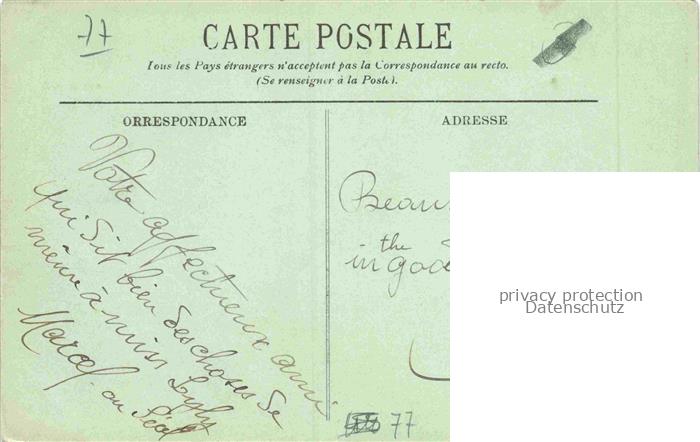 77
CARTE POSTALE
Tous les Pays étrangers n'acceptent pas la Correspondance au recto.
(Se renseigner à la Poste).
ORRESPONDANCE
ADRESSE
Votre affectueux ami
qui dit bien des choses de
même à miss
Marcel ou
Beau
in the good
privacy protection
Datenschutz
77